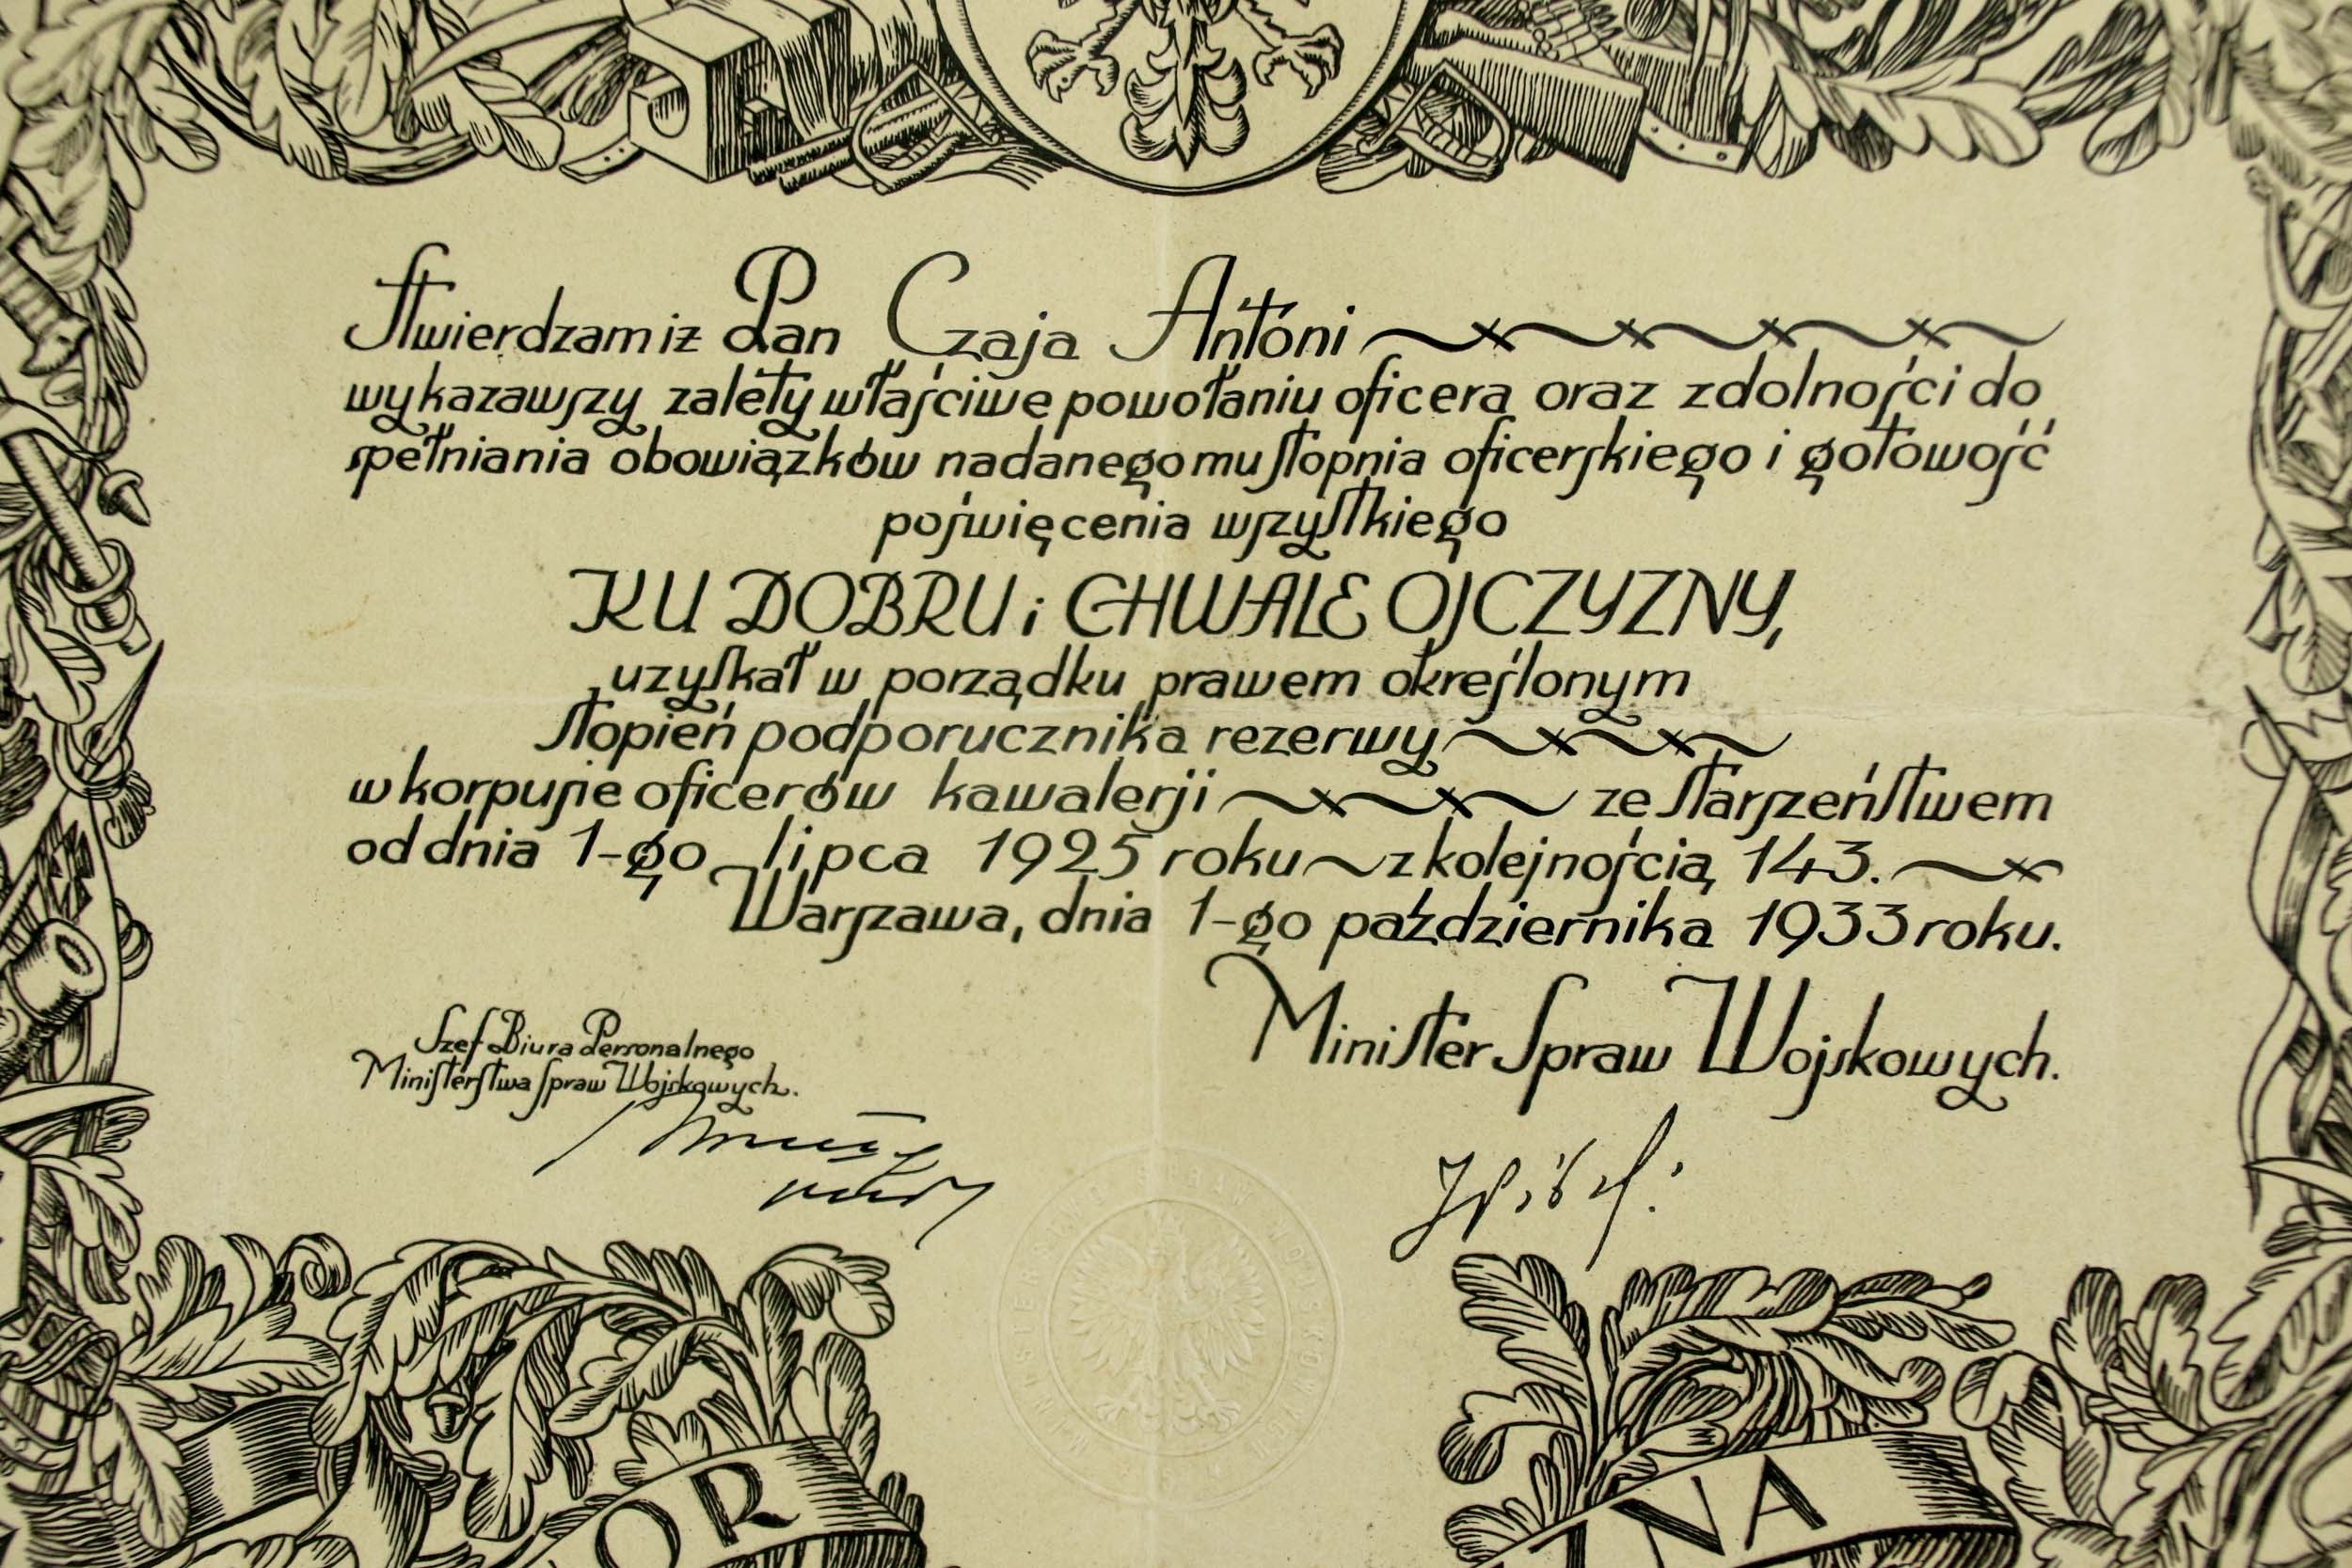 Stwierdzam iż Pan Czaja Antoni
wykazawszy zalety właściwe powołaniu oficera oraz zdolności do
spełniania obowiązków nadanego mu stopnia oficerskiego i gotowość
poświęcenia wszystkiego
KU DOBRU i CHWALE OJCZYZNY,
uzyskał w porządku prawem określonym
stopień podporucznika rezerwy
w korpusie oficerów kawalerji ze starszeństwem
od dnia 1-go lipca 1925 roku z kolejnością 143.
Warszawa, dnia 1-go października 1933 roku.
Szef Biura Personalnego
Ministerstwa Spraw Wojskowych.
Minister Spraw Wojskowych.
OR
NA